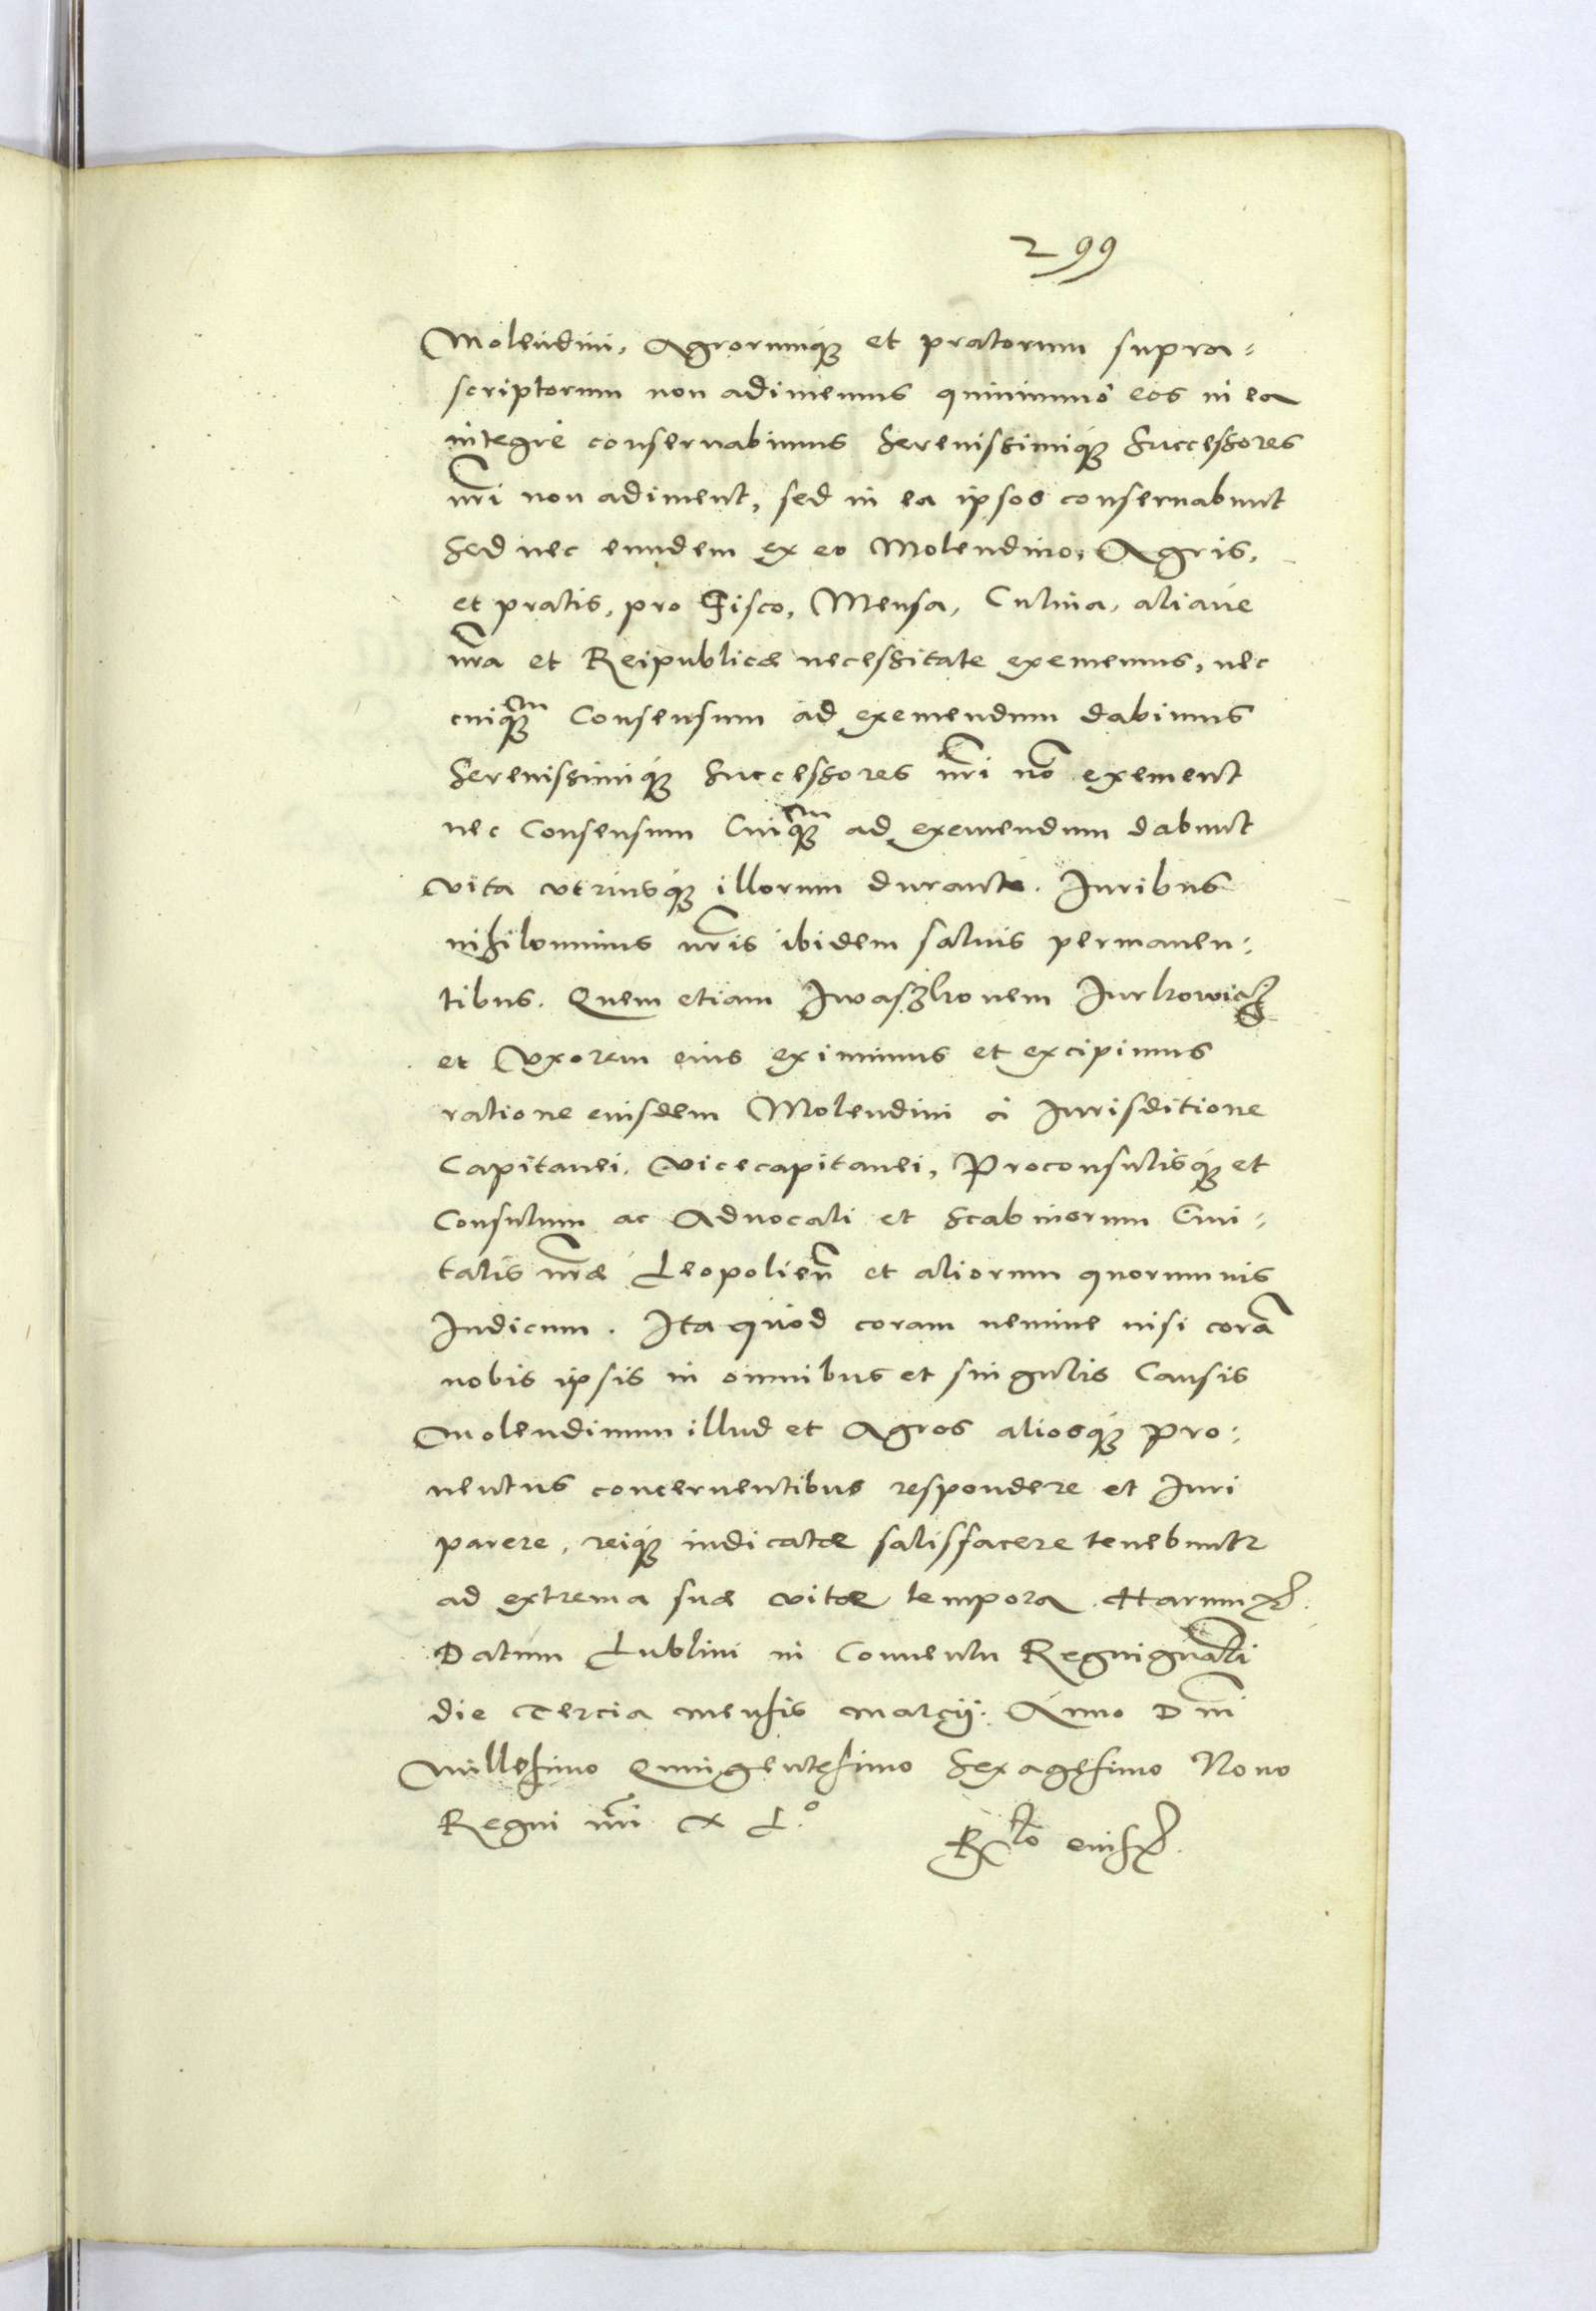 299
Molendini, Agrorumq́ꝫ et pratorum supra-
scriptorum non adimemus quinimmò eos in ea
integrè conseruabimus Serenissimiq́ꝫ Successores
nr̃i non adiment, sed in ea ipsos conseruabunt
Sed nec eundem ex eo Molendino, Agris,
et pratis, pro Fisco, Mensa, Culina, aliaúe
nr̃a et Reipublicæ necessitate exememus, nec
cuiqꝫm Consensum ad exemendum dabimus
Serenissimiq́ꝫ Successores nr̃i nõ exement
nec Consensum Cuiqꝫm ad exemendum dabunt
vita vtriusq́ꝫ illorum durante. Juribus
nihilominus nr̃is ibidem saluis permanen-
tibus. Quem etiam Iwaszkonem Jurkowicz
et Vxorem eius eximimus et excipimus
ratione eiusdem Molendini à Jurisditione
Capitanei, Vicecapitanei, Proconsulisq́ꝫ et
Consulum ac Aduocati et Scabinorum Ciui-
tatis nr̃æ Leopolien̄ et aliorum quorumuis
Judicum. Ita quòd coram nemine nisi corã
nobis ipsis in omnibus et singulis Causis
Molendinum illud et Agros aliosq́ꝫ pro-
uentus concernentibus respondere et Juri
parere, reiq́ꝫ iudicatæ satisfacere tenebuntr
ad extrema suæ vitæ tempora. Harum ꝛc̃.
Datum Lublini in Conuentu Regni gnãli
die Tercia mensis Marcij. Anno Dn̄i
Millesimo Quingentesimo Sexagesimo Nono
Regni nr̃i X L.o
R̃lo eius ꝛc̃.